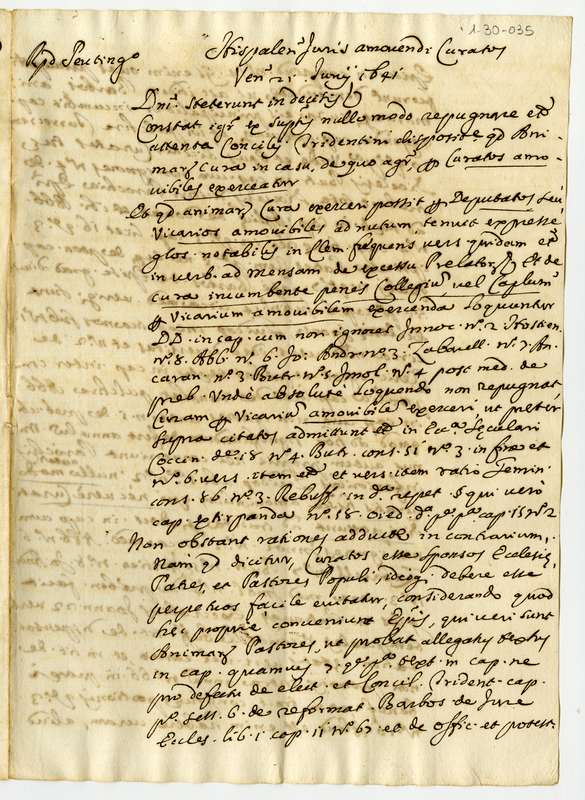 1-30-035
Rpd Peutingo
Hispalen Juris amovendi Curatos
Ven. 21 Junij 1641
Dni steterunt in decisis
Constat igr ex supris nullo modo repugnare et
attenta Concilij Tridentini disposite qd Ani-
mar Cura in casu, de quo agr, p Curatos amo-
vibiles exerceatur
Et qd animar Cura exerceri possit p Deputatos seu
Vicarios amovibiles ad nutum, tenuit expresse
glos. notabilis in Clem. frequens vers quidam et
in verb. ad mensam de excessu Prelator Et de
cura incumbente penes Collegiu vel Caplum
p Vicarium amovibilem exercenda loquuntur
DD. in cap. cum non ignores Innoc. nº 2 Hostien.
nº 8. Abb. nº 6. Jo: Andr. nº 3. Zabarell. nº 7. An-
caran. nº 3. Butr. nº 5. Imol. nº 4 post med. de
preb. Unde absolute loquendo non repugnat
Curam p Vicariu amovibile exerceri, ut preter
supra citatos admittunt et in Ecca Seculari
Coccin. dec. 18 nº 4. Butr. cons. 51 nº 3 in fine et
nº 6. vers. item et et vers. idem ratio Gemin.
cons. 86. nº 3. Rebuff. in da repet. § qui vero
cap. extirpanda nº 18.
Non obstant rationes adducte in contrarium,
Nam qd dicitur, Curatos esse sponsos Ecclesie,
Patres, et Pastores Populi, ideoq debere esse
perpetuos facile evitatur, considerando quod
hec proprie conveniunt Epis, qui veri sunt
Animar Pastores, ut probat allegatus textus
in cap. quamvis 7. text. in cap. ne
pro defectu de elect. et Concil. Trident. cap.
po. sess. 6. de reformat. Barbos. de Jure
Eccles. lib. 1 cap. 11 nº 67 et de offic. et potest.